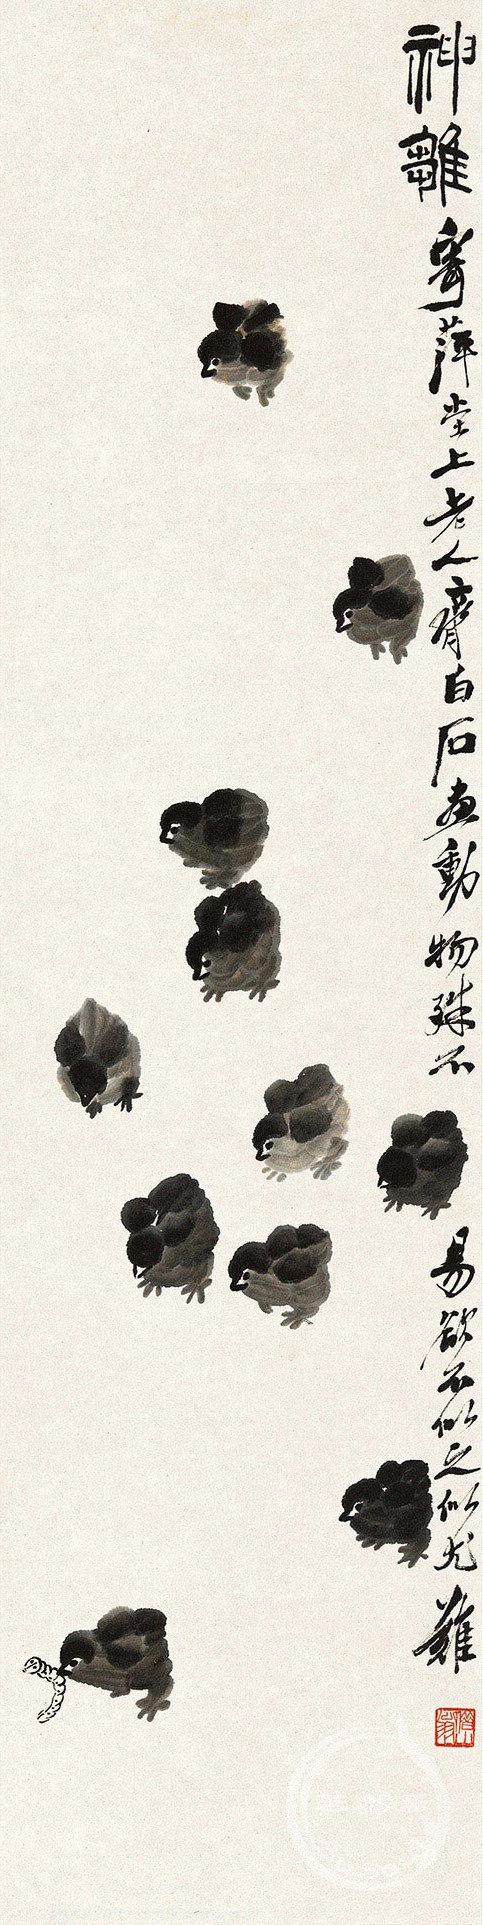 神雛
寄萍堂上老人齊白石畫動物殊不易欲不似之似尤難